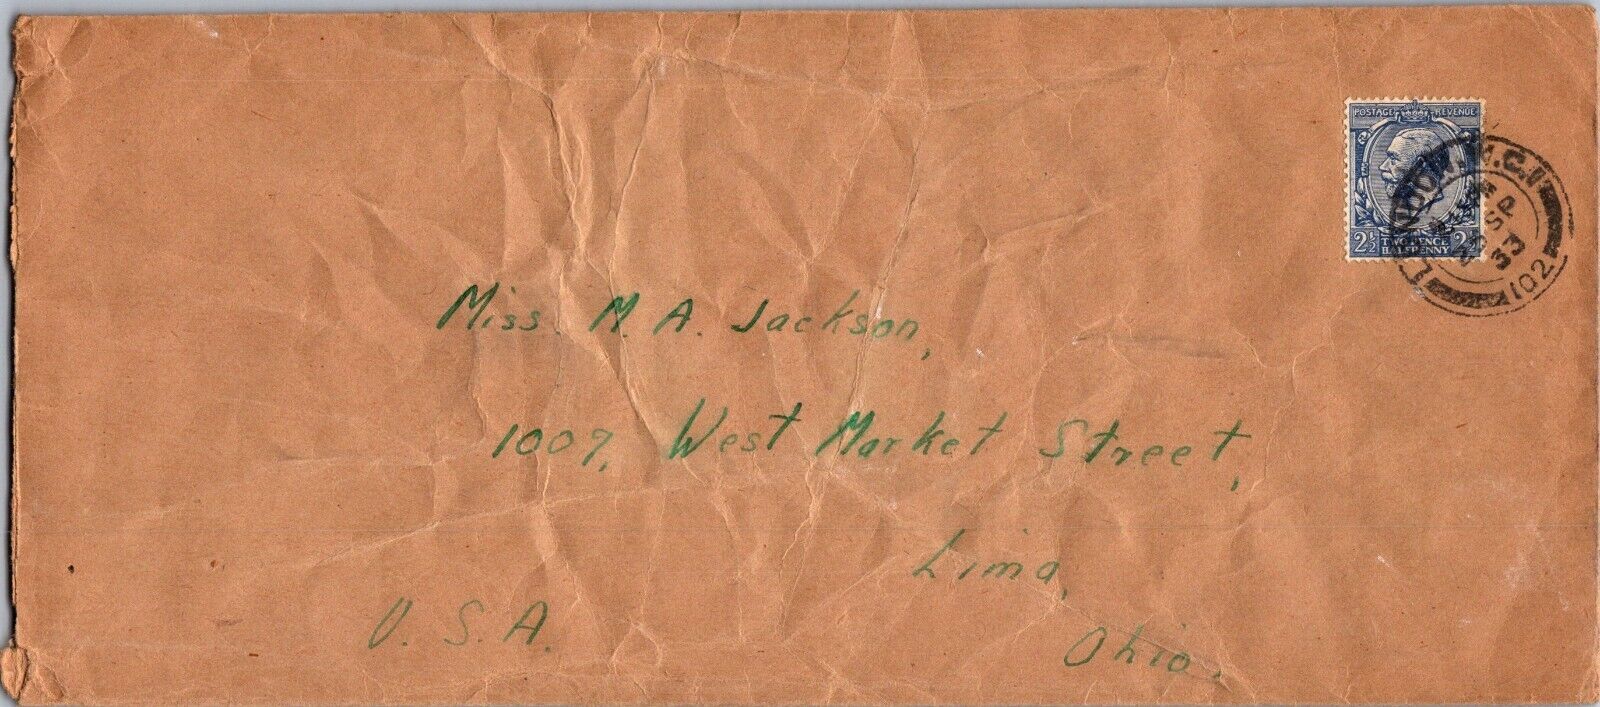 POSTAGE REVENUE
2½ TWO PENCE HALFPENNY 2½
LONDON. W.C.1
SP
33
102
Miss. M. A. Jackson,
1007, West Market Street,
Lima,
Ohio.
U. S. A.